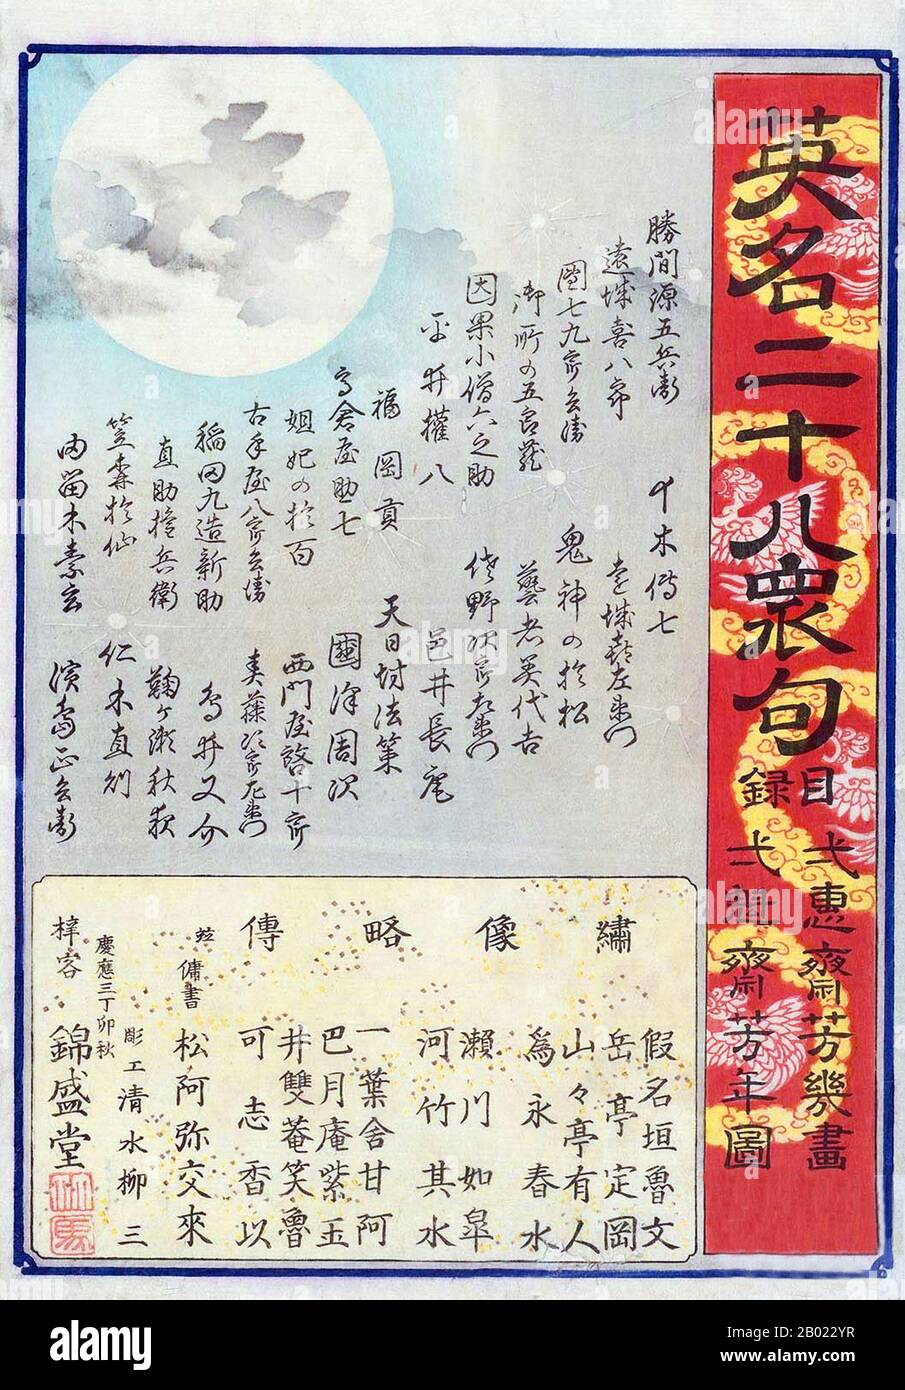 英名二十八衆句
目録
弌蕙齋芳幾畫
弌魁齋芳年圖
勝間源五兵衞
遠城喜八郎
團七九郎兵衞
御所の五良藏
因果小僧六之助
平井權八
福岡貢
高倉屋助七
妲妃の於百
古手屋八郎兵衞
稲田九造新助
直助權兵衛
笠森於仙
由留木素玄
十木傳七
遠城喜左衛門
鬼神の於松
藝者美代吉
佐野次郎左衛門
邑井長庵
天日坊法策
國澤周次
西門屋啓十郎
春藤治郎左衛門
鳥井又介
鞠ヶ瀬秋夜
仁木直則
濱島正兵衞
繡像略傳
假名垣魯文
岳亭定岡
山々亭有人
為永春水
瀬川如皐
河竹其水
一葉舎甘阿
巴月庵紫玉
井雙菴笑魯
可志香以
傭書
松阿弥交來
彫工清水柳三
慶應三丁卯秋
梓客 錦盛堂
alamy
Image ID: 2B022YR
www.alamy.com